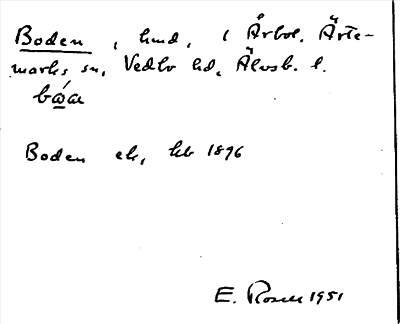 Boden, hmd, i Årbol. Ärte-
marks sn, Vedbo hd, Älvsb. l.
Boden ek, kb 1896
E. Rosell 1951